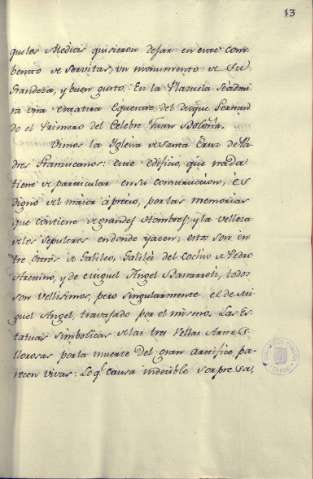 13
que los Medicis quisieron dejar en este com-
bento de servitas, un monumento de su
grandeza, y buen gusto. En la Plazuela
una estatua equestre del duque Fernan-
do el Primero del Celebre Juan Bolonia.
Vimos la Iglesia de Santa Cruz de Pa-
dres Franciscanos: este edificio, que nada
tiene de particular en su construccion, es
digno del maior aprecio, por las memorias
que contiene de grandes Hombres; y la velleza
de los sepulcros en donde yacen; estos son en-
tre otros de Galileo Galilei del de Pedro
Aretino, y de Miguel Angel Bonaroti, todos
son vellisimos, pero singularmente el de Mi-
guel Angel, travajado por el mismo. Las Es-
tatuas simbolicas de las tres vellas Artes
llorosas por la muerte del gran Artifice pa-
recen vivas: Lo q.e causa indecible sorpresa